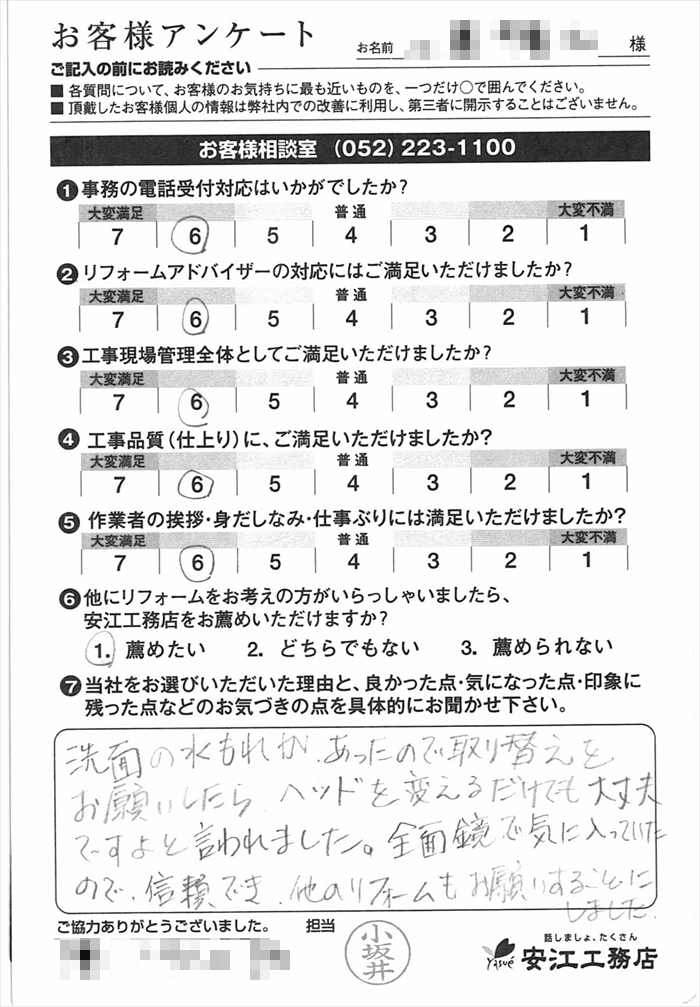 お客様アンケート
お名前 様
ご記入の前にお読みください
■ 各質問について、お客様のお気持ちに最も近いものを、一つだけ○で囲んでください。
■ 頂戴したお客様個人の情報は弊社内での改善に利用し、第三者に開示することはございません。
お客様相談室 (052) 223-1100
❶事務の電話受付対応はいかがでしたか?
大変満足 普通 大変不満
7 6 5 4 3 2 1
❷リフォームアドバイザーの対応にはご満足いただけましたか?
大変満足 普通 大変不満
7 6 5 4 3 2 1
❸工事現場管理全体としてご満足いただけましたか?
大変満足 普通 大変不満
7 6 5 4 3 2 1
❹工事品質(仕上り)に、ご満足いただけましたか?
大変満足 普通 大変不満
7 6 5 4 3 2 1
❺作業者の挨拶・身だしなみ・仕事ぶりには満足いただけましたか?
大変満足 普通 大変不満
7 6 5 4 3 2 1
❻他にリフォームをお考えの方がいらっしゃいましたら、
安江工務店をお薦めいただけますか?
1. 薦めたい 2. どちらでもない 3. 薦められない
❼当社をお選びいただいた理由と、良かった点・気になった点・印象に
残った点などのお気づきの点を具体的にお聞かせ下さい。
洗面の水もれが、あったので取り替えを
お願いしたら、ヘッドを変えるだけでも大丈夫
ですよと言われました。全面鏡で気に入っていた
ので、信頼でき、他のリフォームもお願いすることに
しました。
ご協力ありがとうございました。 担当
小坂井
話しましょ、たくさん
Yasue 安江工務店